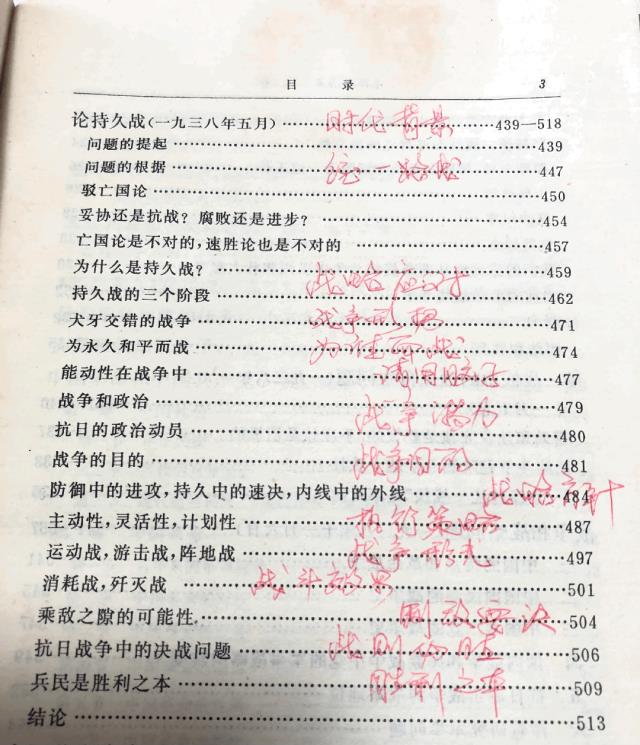 目 录 3
论持久战(一九三八年五月)……时代背景……439—518
问题的提起……439
问题的根据……统一路线……447
驳亡国论……450
妥协还是抗战?腐败还是进步?……454
亡国论是不对的,速胜论也是不对的……457
为什么是持久战?……459
持久战的三个阶段……战略应对……462
犬牙交错的战争……战争……471
为永久和平而战……为谁而战……474
能动性在战争中……477
战争和政治……战争潜力……479
抗日的政治动员……480
战争的目的……战争目的……481
防御中的进攻,持久中的速决,内线中的外线……战略方针……484
主动性,灵活性,计划性……执行策略……487
运动战,游击战,阵地战……战争形式……497
消耗战,歼灭战……战斗效果……501
乘敌之隙的可能性……制敌要决……504
抗日战争中的决战问题……战则必胜……506
兵民是胜利之本……胜利之本……509
结论……513